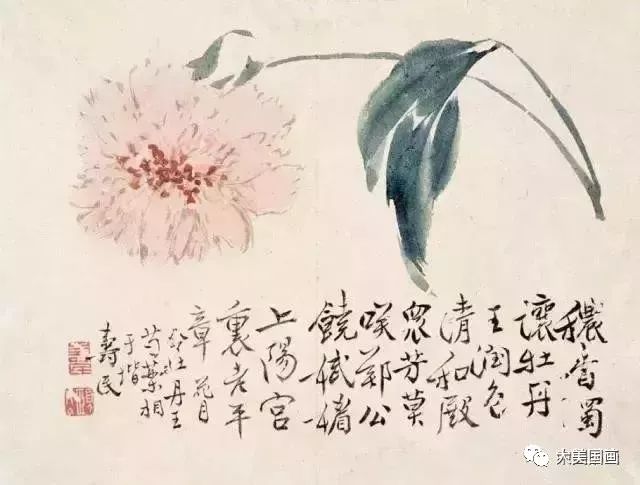 穠香獨
讓牡丹
王润色
清和殿
衆芳莫
咲鄭公
饒嫵媚
上陽宮
裏老平
章 花目
牡丹王
芍藥相
壽民
大美国画